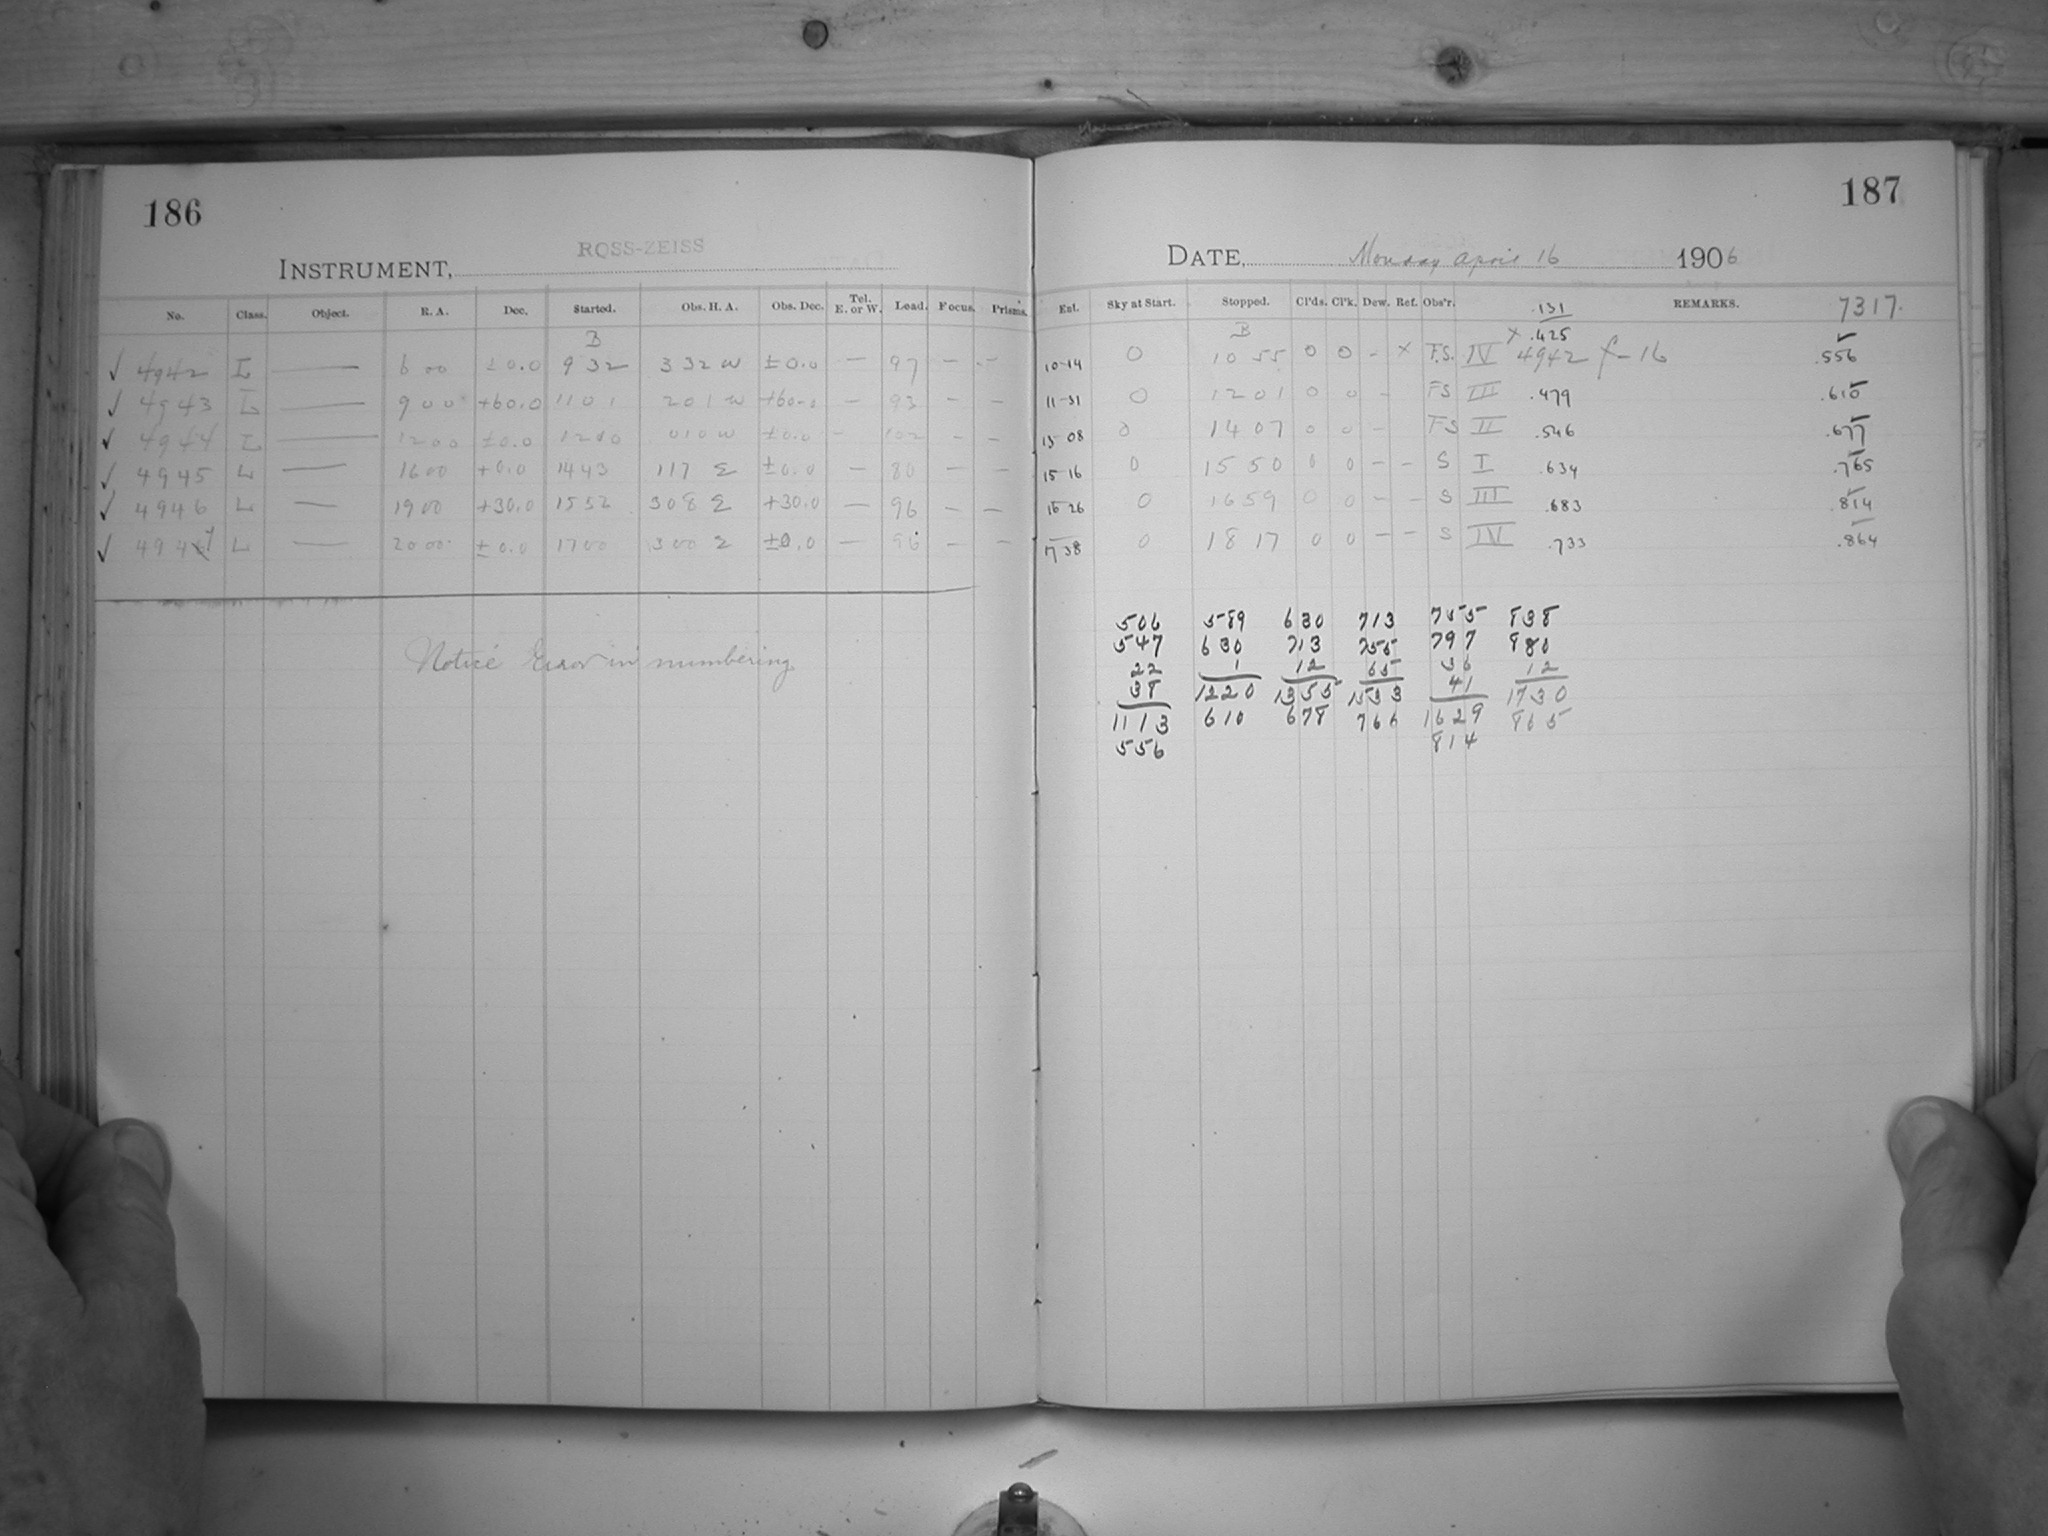 186
ROSS-ZEISS
INSTRUMENT,
No. Class. Object. R. A. Dec. Started. Obs. H. A. Obs. Dec. Tel. E. or W. Load. Focus. Prisms.
B
✓ 4942 L — 6 00 ±0.0 9 32 3 32 W ±0.0 — 97 — —
✓ 4943 L — 9 00 +60.0 11 01 2 01 W +60.0 — 93 — —
✓ 4944 L — 12 00 ±0.0 12 10 0 10 W ±0.0 — 102 — —
✓ 4945 L — 16 00 ±0.0 14 43 1 17 E ±0.0 — 80 — —
✓ 4946 L — 19 00 +30.0 15 52 3 08 E +30.0 — 96 — —
✓ 4947 L — 20 00 ±0.0 17 00 3 00 E ±0.0 — 96 — —
Notice Error in numbering
187
DATE, Monday April 16 1906
Ent. Sky at Start. Stopped. Cl'ds. Cl'k. Dew. Ref. Obs'r. REMARKS.
.131 7317.
B × .425
10-14 0 10 55 0 0 - × F.S. IV 4942 f-16 .556
11-31 0 12 01 0 0 - FS III .479 .610
13 08 0 14 07 0 0 - FS II .546 .677
15-16 0 15 50 0 0 - - S I .634 .765
16 26 0 16 59 0 0 - - S III .683 .814
17 38 0 18 17 0 0 - - S IV .733 .864
506 589 630 713 755 838
547 630 713 755 797 880
22 1 12 65 36 12
38 1220 1355 1533 41 1730
1113 610 678 766 1629 865
556 814